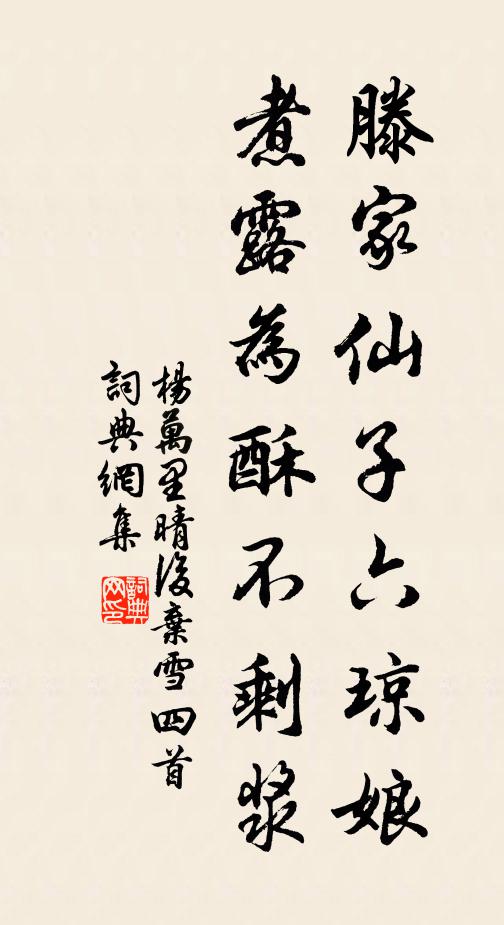 滕家仙子六琼娘
煮露為酥不剩漿
楊萬里晴後棄雪四首
詞典網集
詞典
网印